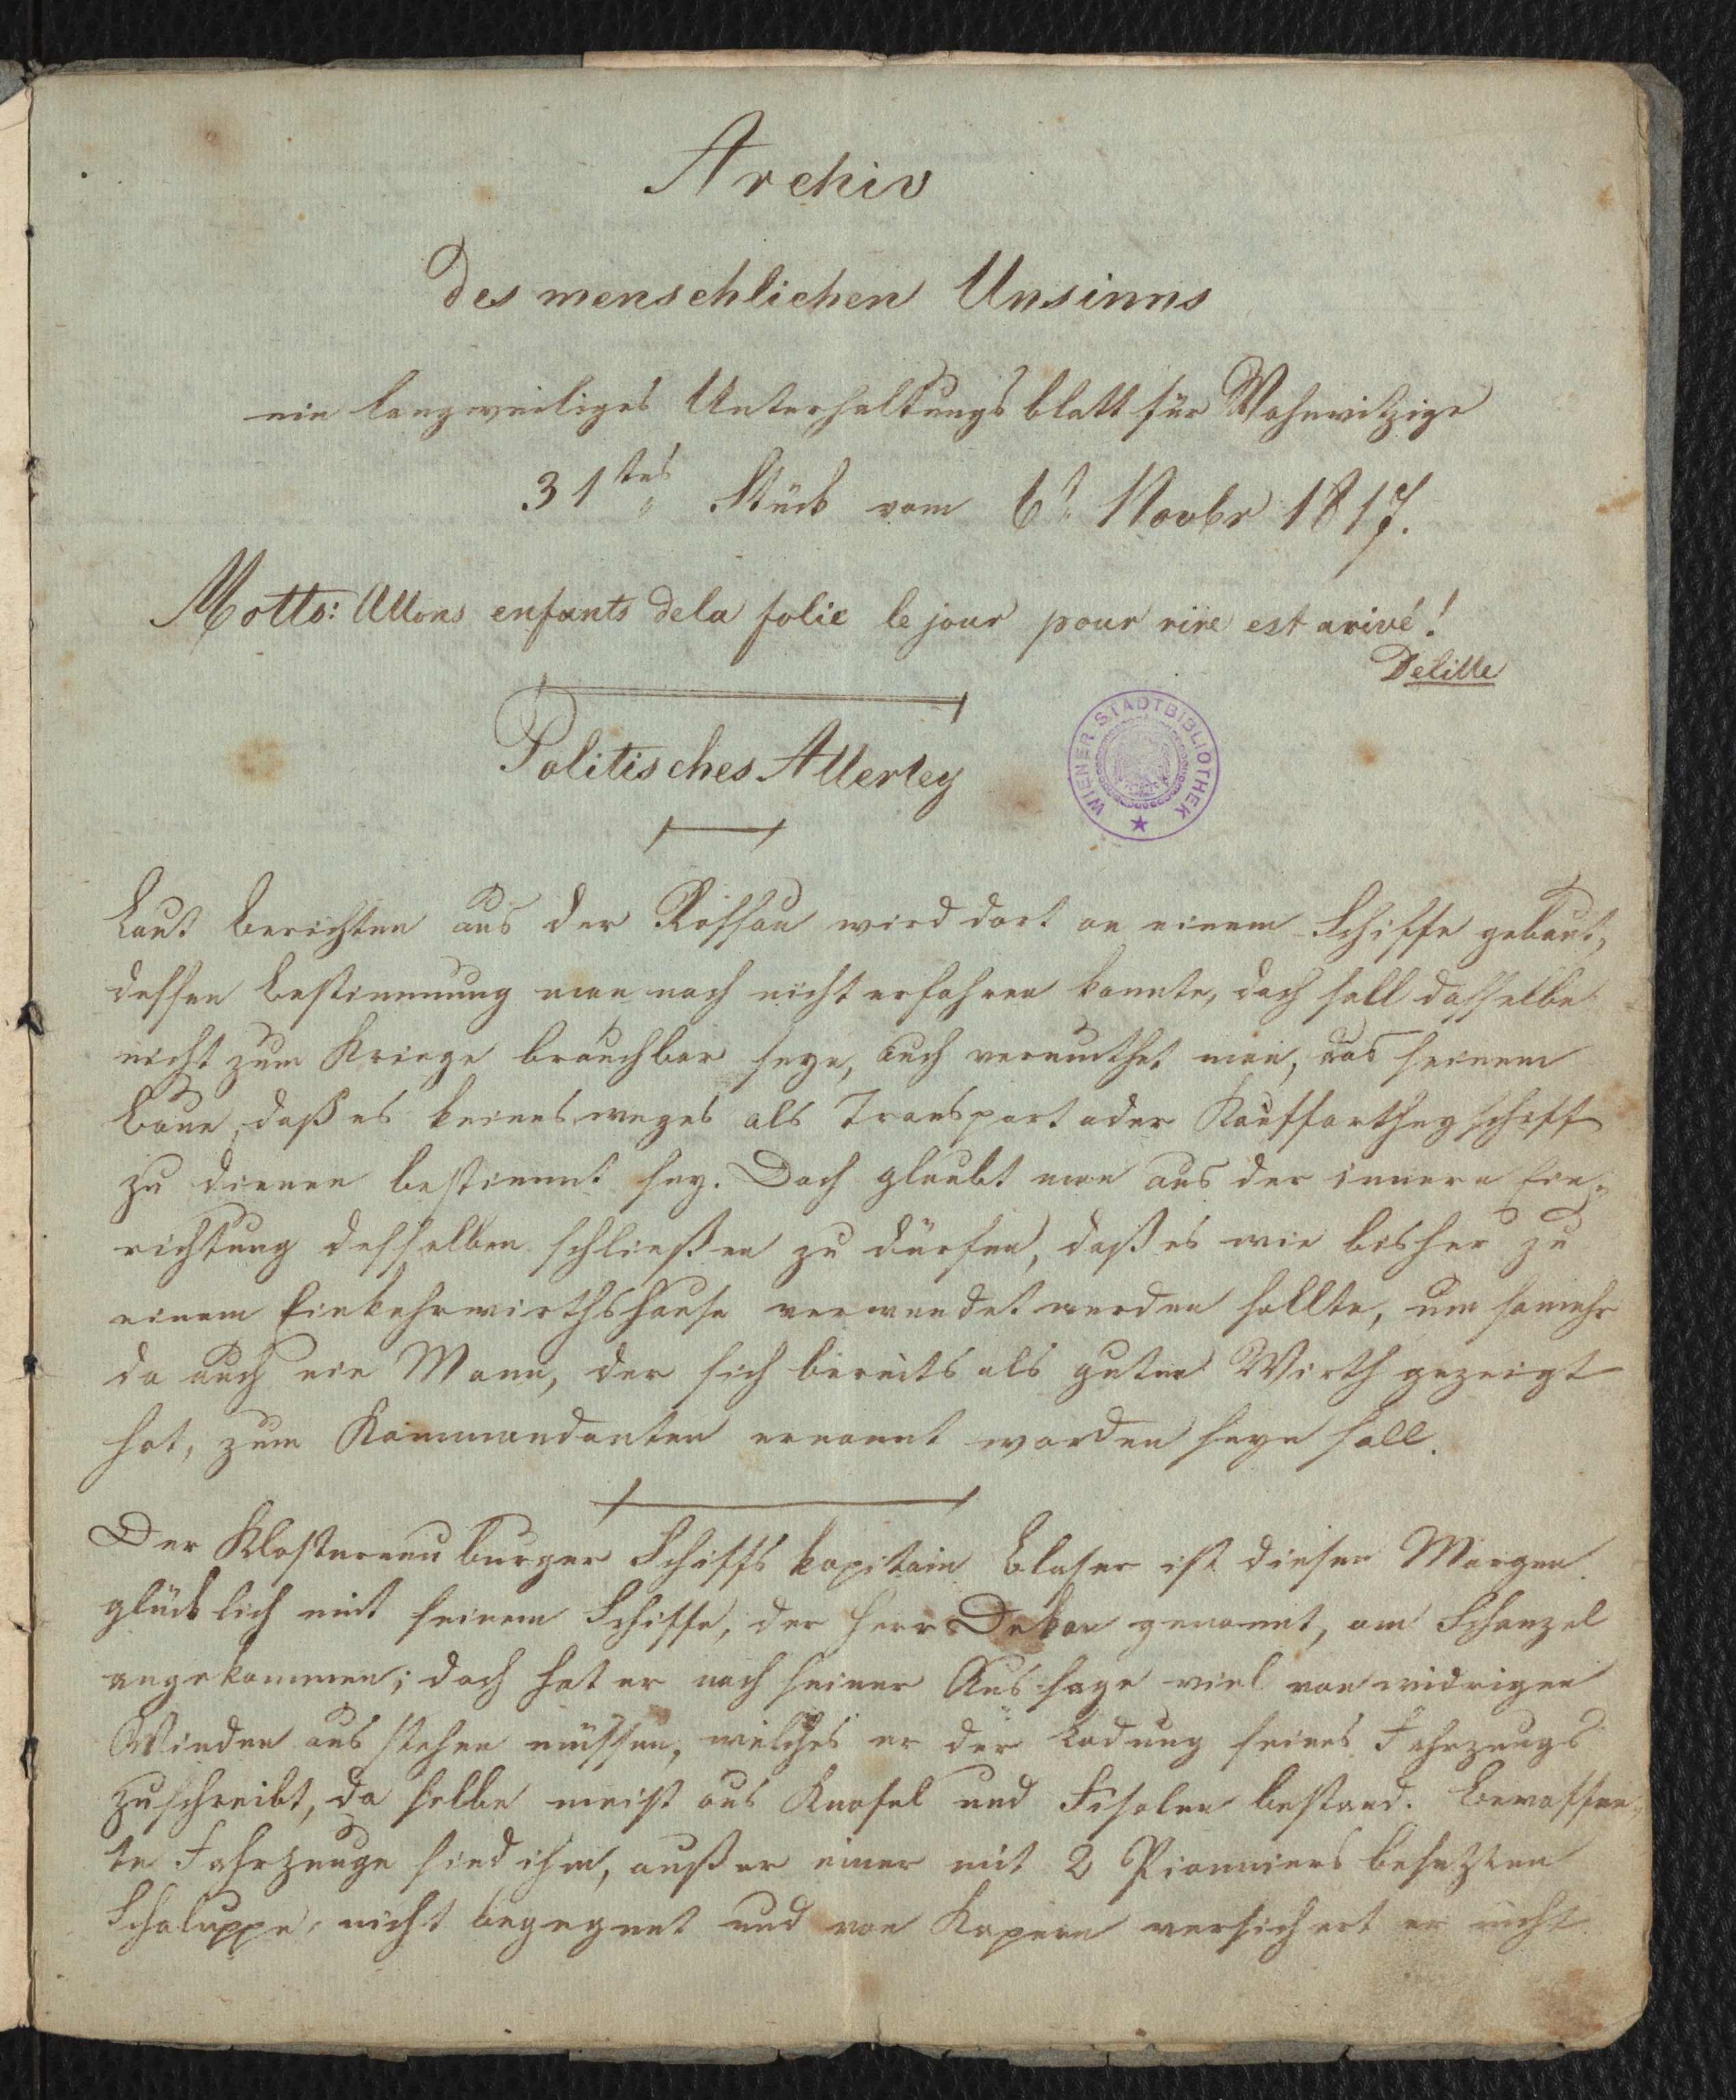 Archiv
des menschlichen Unsinns
ein langweiliges Unterhaltungsblatt für Wahnwitzige
31tes Stück vom 6t Novbr 1817.
Motto: Allons enfants dela folie le jour pour rire est arivé!
Delille
Politisches Allerley
WIENER STADTBIBLIOTHEK
Laut Berichten aus der Rossau wird dort an einem Schiffe gebaut,
dessen Bestimmung man noch nicht erfahren konnte, doch soll dasselbe
nicht zum Kriege brauchbar seyn, auch vermuthet man, aus seinem
Baue, daß es keinesweges als Transport oder Kauffartheyschiff
zu dienen bestimmt sey. Doch glaubt man aus der innern Ein-
richtung desselben schließen zu dürfen, daß es wie bisher zu
einem Einkehrwirthshause verwendet werden sollte, um somehr
da auch ein Mann, der sich bereits als guter Wirth gezeigt
hat, zum Kommandanten ernannt worden seyn soll.
Der Klosterneuburger Schiffs kapitain Blaser ist diesen Morgen
glücklich mit seinem Schiffe, der Herr Dekan genannt, am Schanzel
angekommen; doch hat er nach seiner Aussage viel von widrigen
Winden ausstehen müssen, welches er der Ladung seines Fahrzeugs
zuschreibt, da selbe meist aus Knofel und Fisolen bestand. Bewaffne-
te Fahrzeuge sind ihm, außer einer mit 2 Pionniers besetzten
Schaluppe, nicht begegnet und von Kapern versichert er nicht